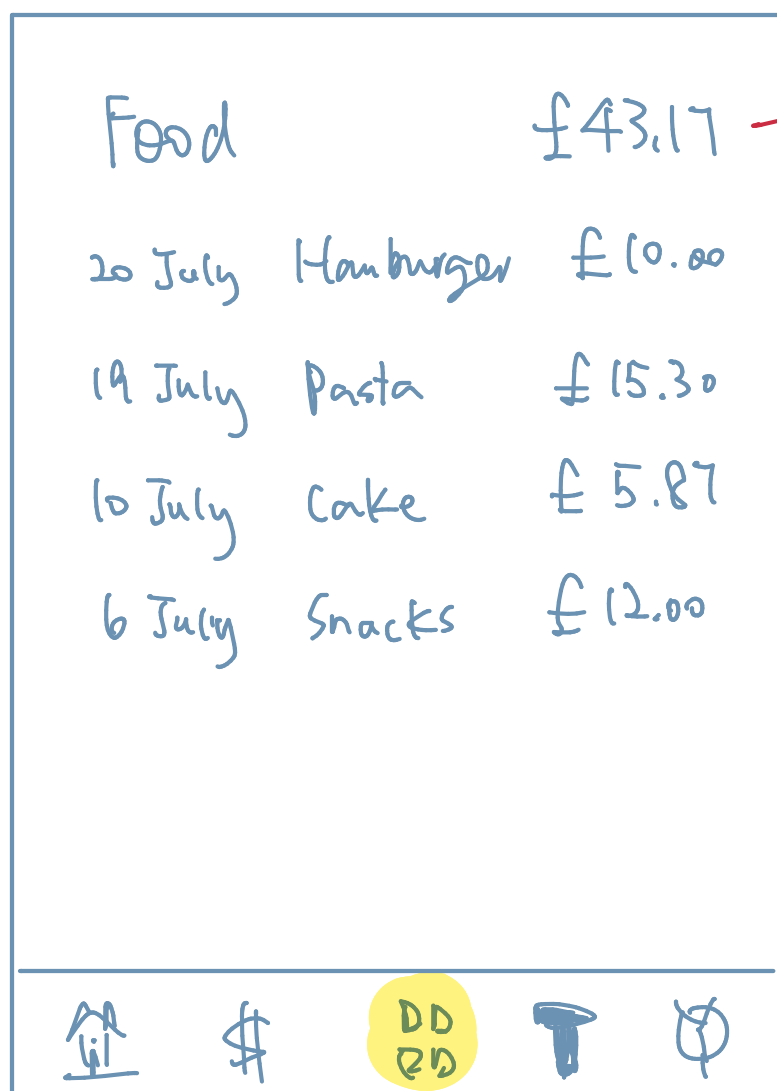 Food £43.17
20 July Hamburger £10.00
19 July Pasta £15.30
10 July Cake £5.87
6 July Snacks £12.00
$